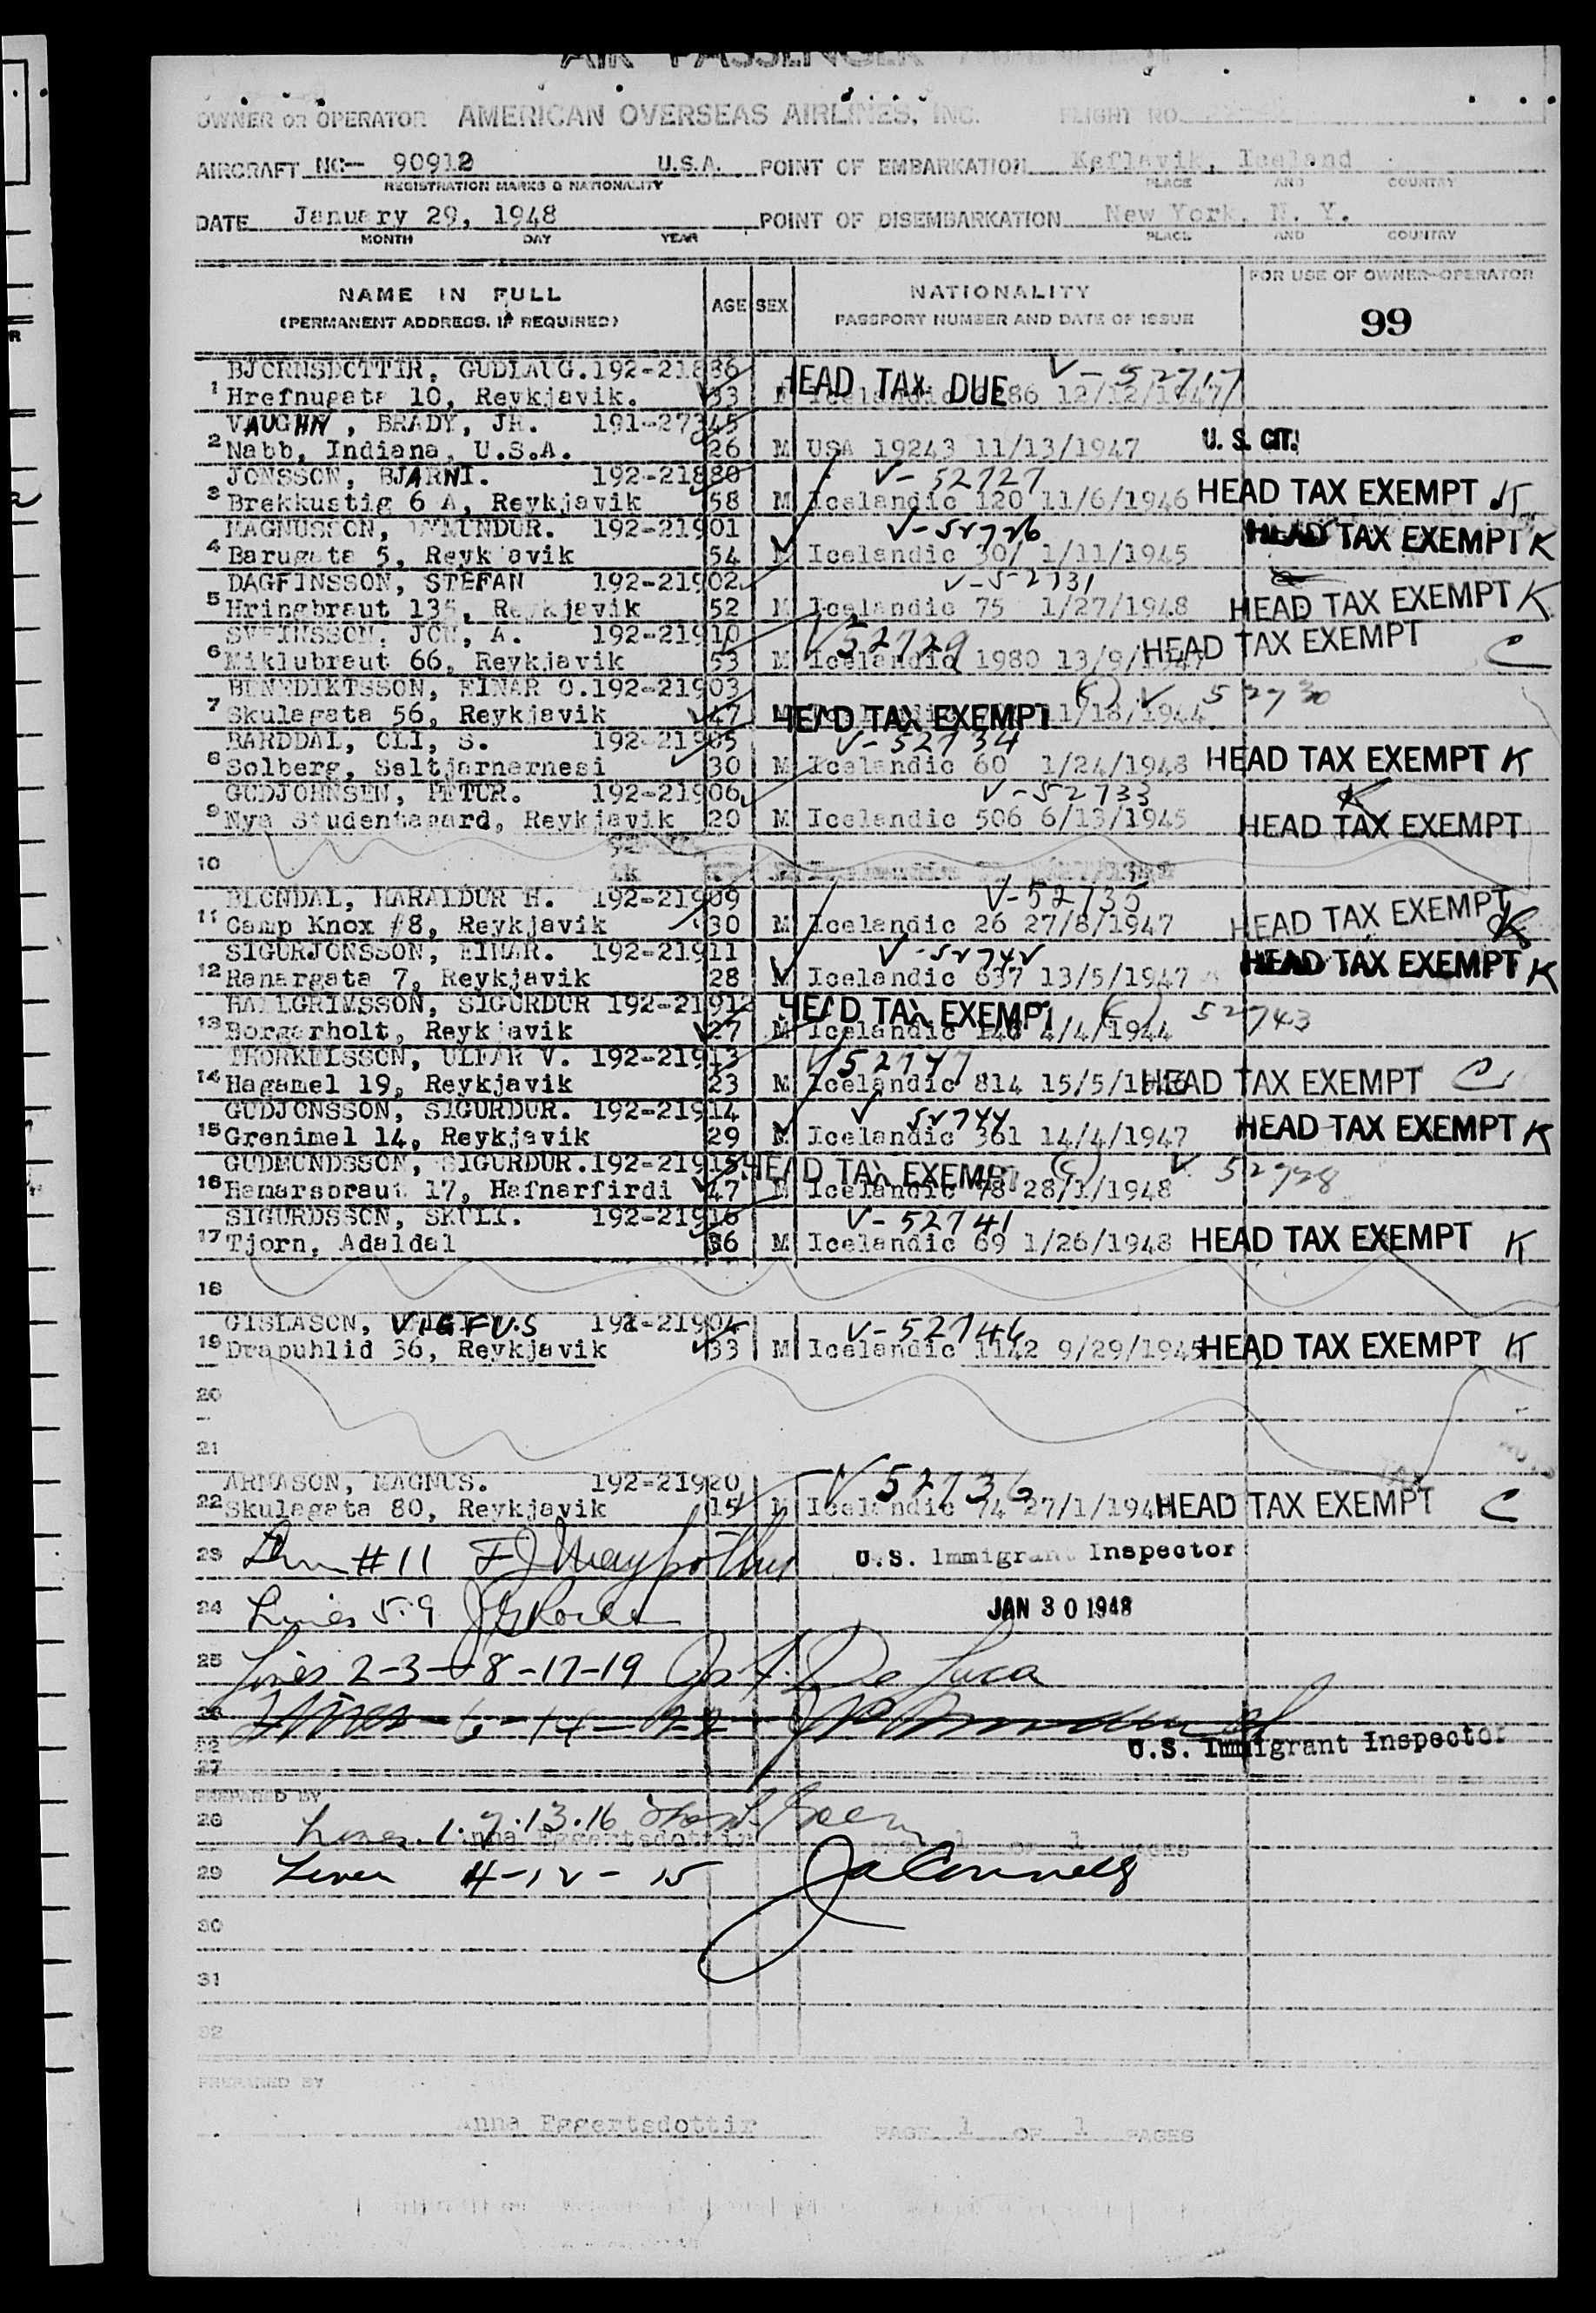 AIR PASSENGER
OWNER OR OPERATOR AMERICAN OVERSEAS AIRLINES, INC. FLIGHT NO.
AIRCRAFT NC- 90912 U.S.A. POINT OF EMBARKATION Keflavik, Iceland
REGISTRATION MARKS & NATIONALITY PLACE AND COUNTRY
DATE January 29, 1948 POINT OF DISEMBARKATION New York, N. Y.
MONTH DAY YEAR PLACE AND COUNTRY
NAME IN FULL AGE SEX NATIONALITY FOR USE OF OWNER-OPERATOR
(PERMANENT ADDRESS, IF REQUIRED) PASSPORT NUMBER AND DATE OF ISSUE 99
BJORNSDOTTIR, GUDLAUG. 192-21886 V-52717
1 Hrefnugata 10, Reykjavik. 33 Icelandic 12/12/1947 HEAD TAX DUE
VAUGHN, BRADY, JR. 191-27345
2 Nabb, Indiana, U.S.A. 26 M USA 19243 11/13/1947 U. S. CIT.
JONSSON, BJARNI. 192-21880 V-52727
3 Brekkustig 6 A, Reykjavik 58 M Icelandic 120 11/6/1946 HEAD TAX EXEMPT K
MAGNUSSON, 192-21901 V-52726
4 Barugata 5, Reykjavik 54 M Icelandic 1/11/1945 HEAD TAX EXEMPT K
DAGFINSSON, STEFAN 192-21902 V-52731
5 Hringbraut Reykjavik 52 M Icelandic 75 1/27/1948 HEAD TAX EXEMPT K
SVEINSSON, JON, A. 192-21910 V 52729
6 Miklubraut 66, Reykjavik 53 M Icelandic 1980 13/9/1947 HEAD TAX EXEMPT C
BENEDIKTSSON, EINAR O. 192-21903 (C) V 52730
7 Skulagata 56, Reykjavik 47 11/18/1944 HEAD TAX EXEMPT
BARDDAL, OLI, S. 192-21905 V-52734
8 Solberg, Seltjarnarnesi 30 M Icelandic 60 1/24/1948 HEAD TAX EXEMPT K
GUDJOHNSEN, PETUR. 192-21906 V-52733 K
9 Nya Studentagard, Reykjavik 20 M Icelandic 506 6/13/1945 HEAD TAX EXEMPT
10
BLONDAL, HARALDUR H. 192-21909 V-52735
11 Camp Knox #8, Reykjavik 30 M Icelandic 26 27/8/1947 HEAD TAX EXEMPT K
SIGURJONSSON, EINAR. 192-21911 V-52742
12 Ranargata 7, Reykjavik 28 M Icelandic 637 13/5/1947 HEAD TAX EXEMPT K
HALLGRIMSSON, SIGURDUR 192-21912 (C) 52743
13 Borgarholt, Reykjavik 27 M Icelandic 146 4/4/1944 HEAD TAX EXEMPT
THORKELSSON, ULFAR V. 192-21913 V 52747
14 Hagamel 19, Reykjavik 23 M Icelandic 814 15/5/1946 HEAD TAX EXEMPT C
GUDJONSSON, SIGURDUR. 192-21914 V 52744
15 Grenimel 14, Reykjavik 29 M Icelandic 361 14/4/1947 HEAD TAX EXEMPT K
GUDMUNDSSON, SIGURDUR. 192-21915 HEAD TAX EXEMPT (C) V 52728
16 Hamarsbraut 17, Hafnarfirdi 47 M Icelandic 78 28/1/1948
SIGURDSSON, SKULI. 192-21916 V-52741
17 Tjorn, Adaldal 36 M Icelandic 69 1/26/1948 HEAD TAX EXEMPT K
18
GISLASON, VIGFUS 192-21904 V-52746
19 Drapuhlid 36, Reykjavik 33 M Icelandic 1142 9/29/1945 HEAD TAX EXEMPT K
20
21
ARNASON, MAGNUS. 192-21920 V 52736
22 Skulagata 80, Reykjavik 15 M Icelandic 74 27/1/1948 HEAD TAX EXEMPT C
23 Line #11 U.S. Immigrant Inspector
24 Lines 5.9 JAN 30 1948
25 Lines 2-3-8-17-19 Jos. F. De Luca
26 Lines - 6 - 14 - 22
U.S. Immigrant Inspector
27
PREPARED BY
28 Lines 1.7.13.16
Anna Eggertsdottir 1 OF 1 PAGES
29 Lines 4-12-15 J A Connelly
30
31
32
PREPARED BY
Anna Eggertsdottir PAGE 1 OF 1 PAGES